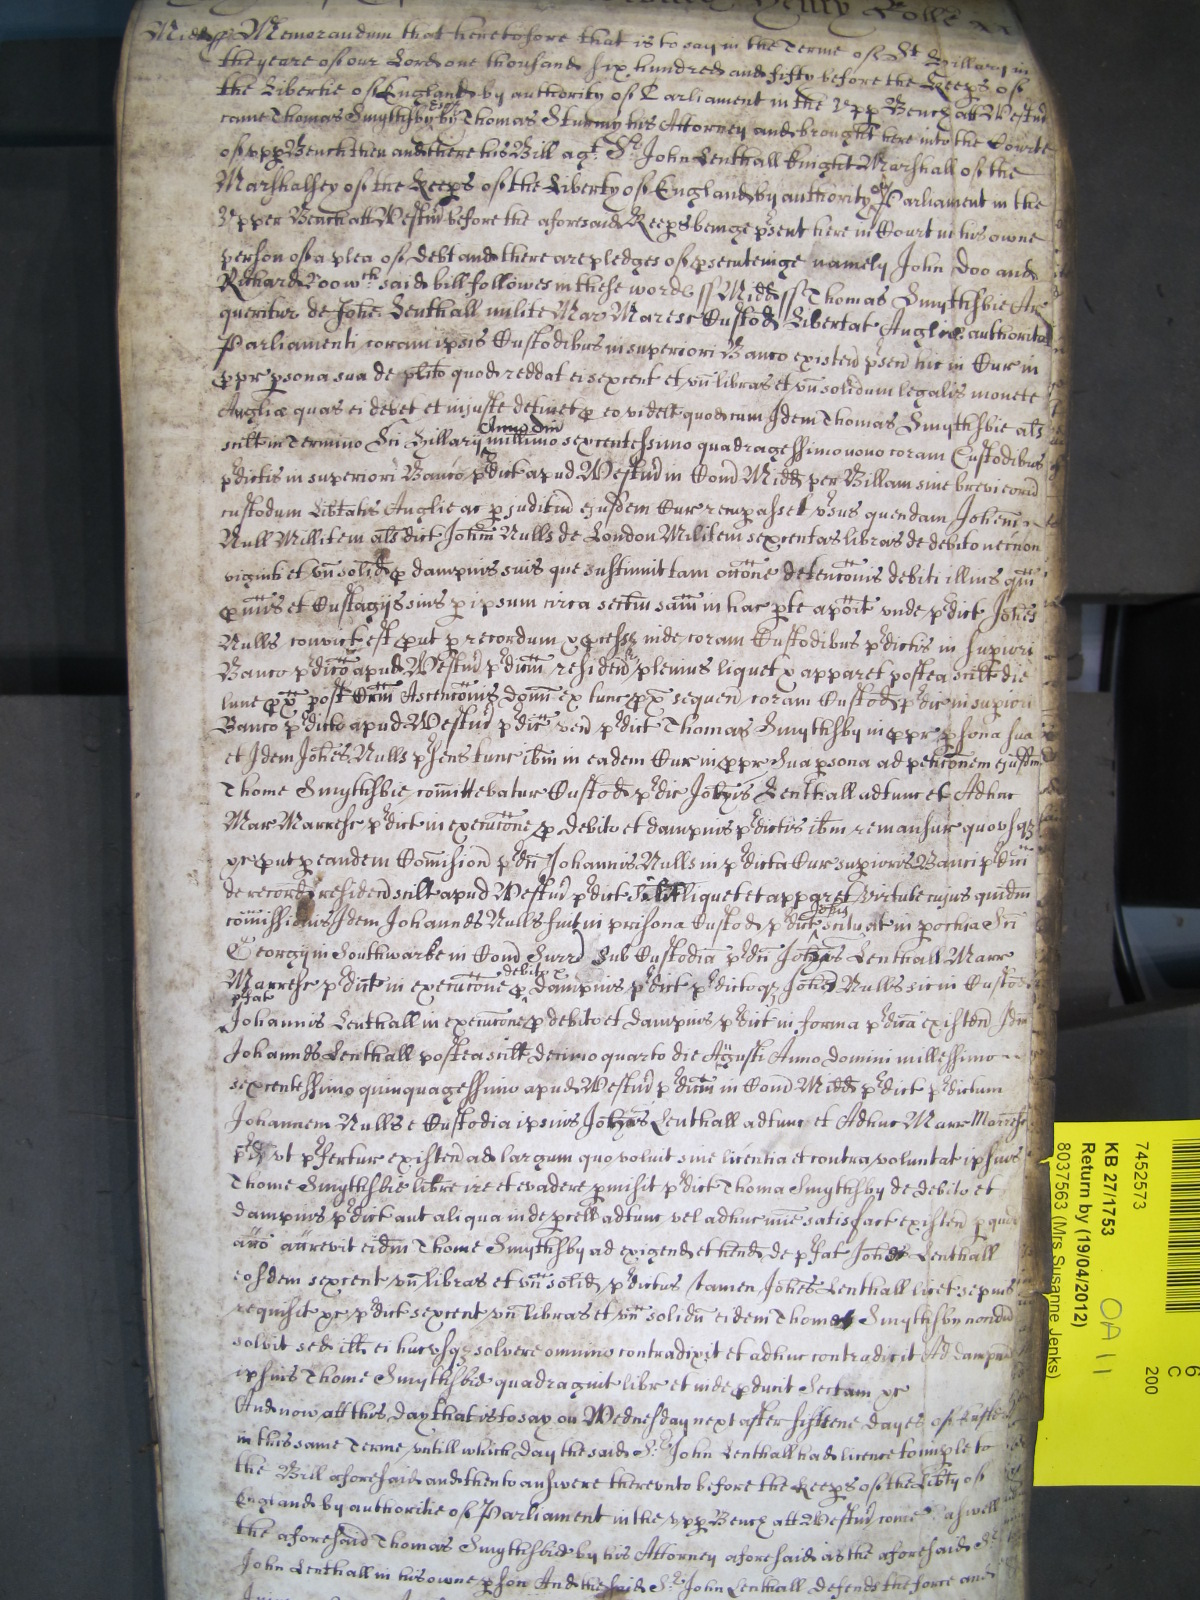 Henry Rolle
Midd ss Memorandum that heretofore that is to say in the Terme of St Hillary in
the yeare of our Lord one thousand six hundred and fifty before the Keeps of
the Libertie of England by authority of Parliament in the Upp Bench att Westm
came Thomas Smythsby Esq by Thomas Sturmy his Attorney and brought here into the Courte
of upp Bench then and there his Bill agt Sr John Lenthall Knight Marshall of the
Marshalsey of the Keeps of the Liberty of England by authority of Parliament in the
Upper Bench att Westm before the aforesaid Keeps beinge psent here in Court in his owne
person of a plea of debt and there are pledges of psecuteinge namely John Doo and
Richard Roo wch said bill followes in these words ss Midd ss Thomas Smythsbie Ar
queritur de Johe Lenthall milite Mar Maresc Custod Libertat Angl authoritat
Parliamenti coram ipsis Custodibus in superiori Banco existen psen hic in Cur in
ppr psona sua de plito quod reddat ei sexcent et un libras et un solidum legalis monete
Anglie quas ei debet et injuste detinet p eo videlt quod cum Idem Thomas Smythsbie als
scilt in Termino Sci Hillary Anno Dni millimo sexcentessimo quadragessimo nono coram Custodibus
pdictis in superiori Banco pdict apud Westm in Com Midd per Billam sine brevi eorund
custodum Libtatis Anglie ac p juditiu ejusdem Cur recupasset vsus quendam Johem
Null Militem als dict Johem Nulls de London Militem sexcentas libras de debito necnon
viginti et un solid p dampnis suis que sustinuit tam occone detenconis debiti illius qm
p mis et Custagijs suis p ipsum circa sectm suam in hac pte apoit unde pdict Johes
Nulls convict est put p recordum & pcess inde coram Custodibus pdictis in supiori
Banco pdico apud Westm pdicm residen plenius liquet & apparet postea scilt die
lune px post Crm Ascenconis domi ex tunc px sequen coram Custod pdic in supiori
Banco pdicto apud Westm pdic ven pdict Thomas Smythsby in ppr psona sua
et Idem Johes Nulls psens tunc ibm in eadem Cur in ppr sua psona ad peticonem ejusdm
Thome Smythsbie comittebatur Custod pdic Johis Lenthall adtunc et Adhuc
Mar Marresc pdict in execucone p debito et dampnis pdictis ibm remansur quousqz
&c put p eandem Comision pdci Johannis Nulls in pdicta Cur supioris Banci pdci
de record residen scilt apud Westm pdict liquet et apparet virtute cujus quidm
comissionis Idem Johannes Nulls fuit in prisona Custod pdict Johis scituat in pochia Sci
Georgij in Southwarke in Com Surr Sub Custodia pdci Johis Lenthall Marr
Marresc pdict in execucone p debito & dampnis pdict pdictoqz Johes Nulls sic in Custod
pfat
Johannis Lenthall in execucone p debito et dampnis pdict in forma pdica existen Idm
Johannes Lenthall postea scilt decimo quarto die Agusti Anno domini millessimo
sexcentessimo quinquagessimo apud Westm pdicm in Com Midd pdict pdictum
Johannem Nulls e Custodia ipsius Johis Lenthall adtunc et Adhuc Marr Marresc
ut pfertur existen ad largum quo voluit sine licentia et contra voluntat ipsius
Thome Smythsbie libre ire et evadere pmisit pdict Thoma Smythsby de debito et
dampnis pdict aut aliqua inde pcell adtunc vel adhuc mie satisfact existen p quod
acco accrevit eidm Thome Smythsby ad exigend et hend de pfat Johe Lenthall
eosdem sexcent un libras et un solid pdictus tamen Johes Lenthall licet sepius
requisit &c pdict sexcent un libras et un solidu eidem Thome Smythsby nondu
solvit sed ill ei hucusqz solvere omnino contradixit et adhuc contradicit Ad dampnu
ipsius Thome Smythsbie quadragint libr et inde pducit Sectam &c
And now att this day that is to say on Wednesday next after fifteene dayes of Easter
in this same Terme untill which day the said Sr John Lenthall had licence to imple to
the Bill aforesaid and then to answere thereunto before the Keeps of the Libty of
England by authoritie of Parliament in the upp Bench att Westm come aswell
the aforesaid Thomas Smythsbie by his Attorney aforesaid as the aforesaid Sr
John Lenthall in his owne pson And the said Sr John Lenthall defends the force and
7452573
KB 27/1753
Return by (19/04/2012)
8037563 (Mrs Susanne Jenks)
OA 11
6
C
200